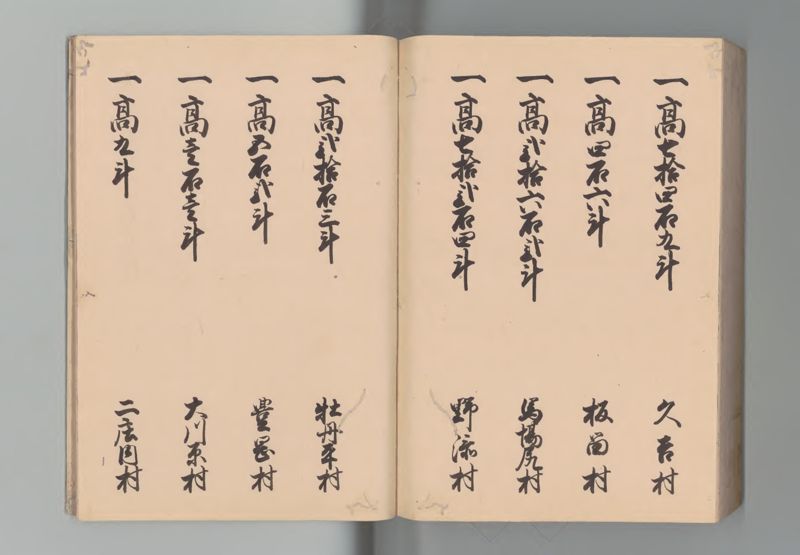 一高七拾四石九斗 久吉村
一高四石六斗 板留村
一高弐拾六石弐斗 馬場尻村
一高七拾弐石四斗 野添村
一高弐拾石三斗 牡丹平村
一高五石弐斗 豊岡村
一高壱石壱斗 大川原村
一高九斗 二庄内村